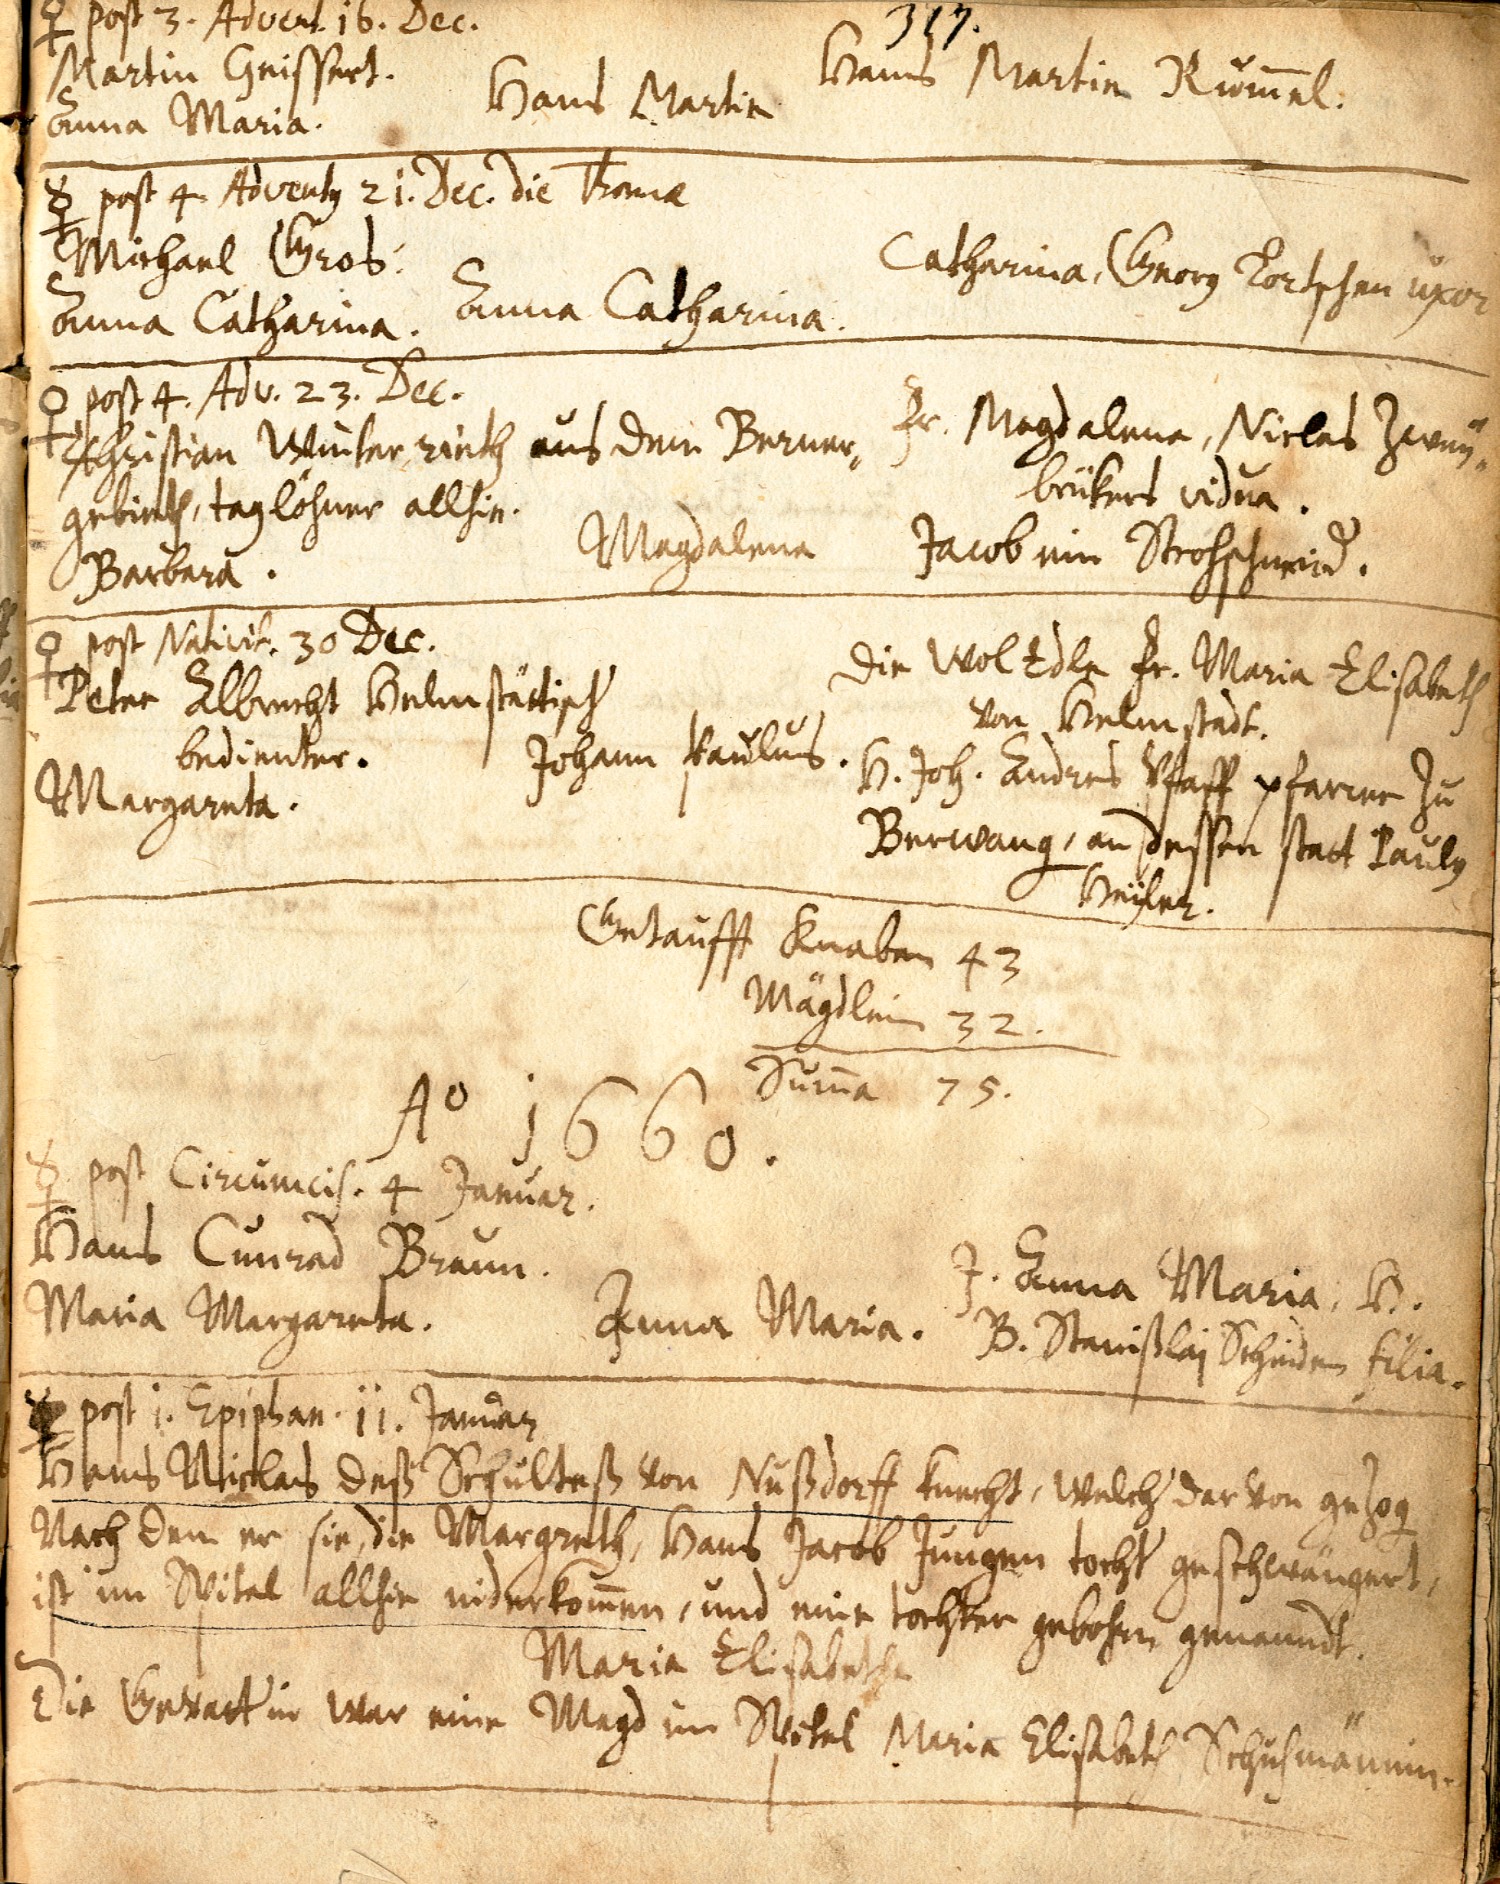 317.
♀ post 3. Advent. 16. Dec.
Martin Geissert.
Anna Maria.
Hans Martin
Hans Martin Rum̄el.
☿ post 4. Adventq 21. Dec. die Thomæ
Michael Gros.
Anna Catharina.
Anna Catharina.
Catharina, Georg uxor
♀ post 4. Adv. 23. Dec.
Christian Winter aus dem Berner„
gebieth, taglöhner allhie.
Barbara.
Magdalena
Fr. Magdalena, Niclas Zwey„
brükers vidua.
Jacob ein Strohschneid.
♀ post Nativit. 30 Dec.
Peter Albrecht Helmstättisch
bedienter.
Margareta.
Johann Paulus.
Die Wol Edle Fr. Maria Elisabeth
von Helmstadt.
H. Joh. Andres Pfaff pfarrer zu
Berwang, an dessen statt Paulq
Getaufft Knaben 43
Mägdlein 32.
Sum̄a 75.
Aº 1660.
☿ post Circumcis. 4 Januar.
Hans Cunrad Braun.
Maria Margareta.
Anna Maria.
J. Anna Maria, H.
B. Stanißlaj filia.
☿ post 1. Epiphan. 11. Januar
Hans Niclas deß Schulteß von Nußdorff knecht, welch dar von gezog
Nach dem er sie, die Margreth, Hans Jacob Jungen tocht geschwängert,
ist im Spital allhie niderkom̄en, und eine tochter gebohrn genanndt.
Maria Elisabetha
Die Gevattin war eine Magd im Spital Maria Elisabeth Schuhmännin.